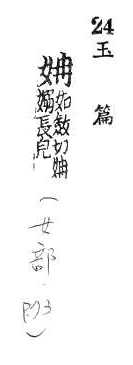 24
玉篇
姌 如敘切姌
嫋長皃
(女部·